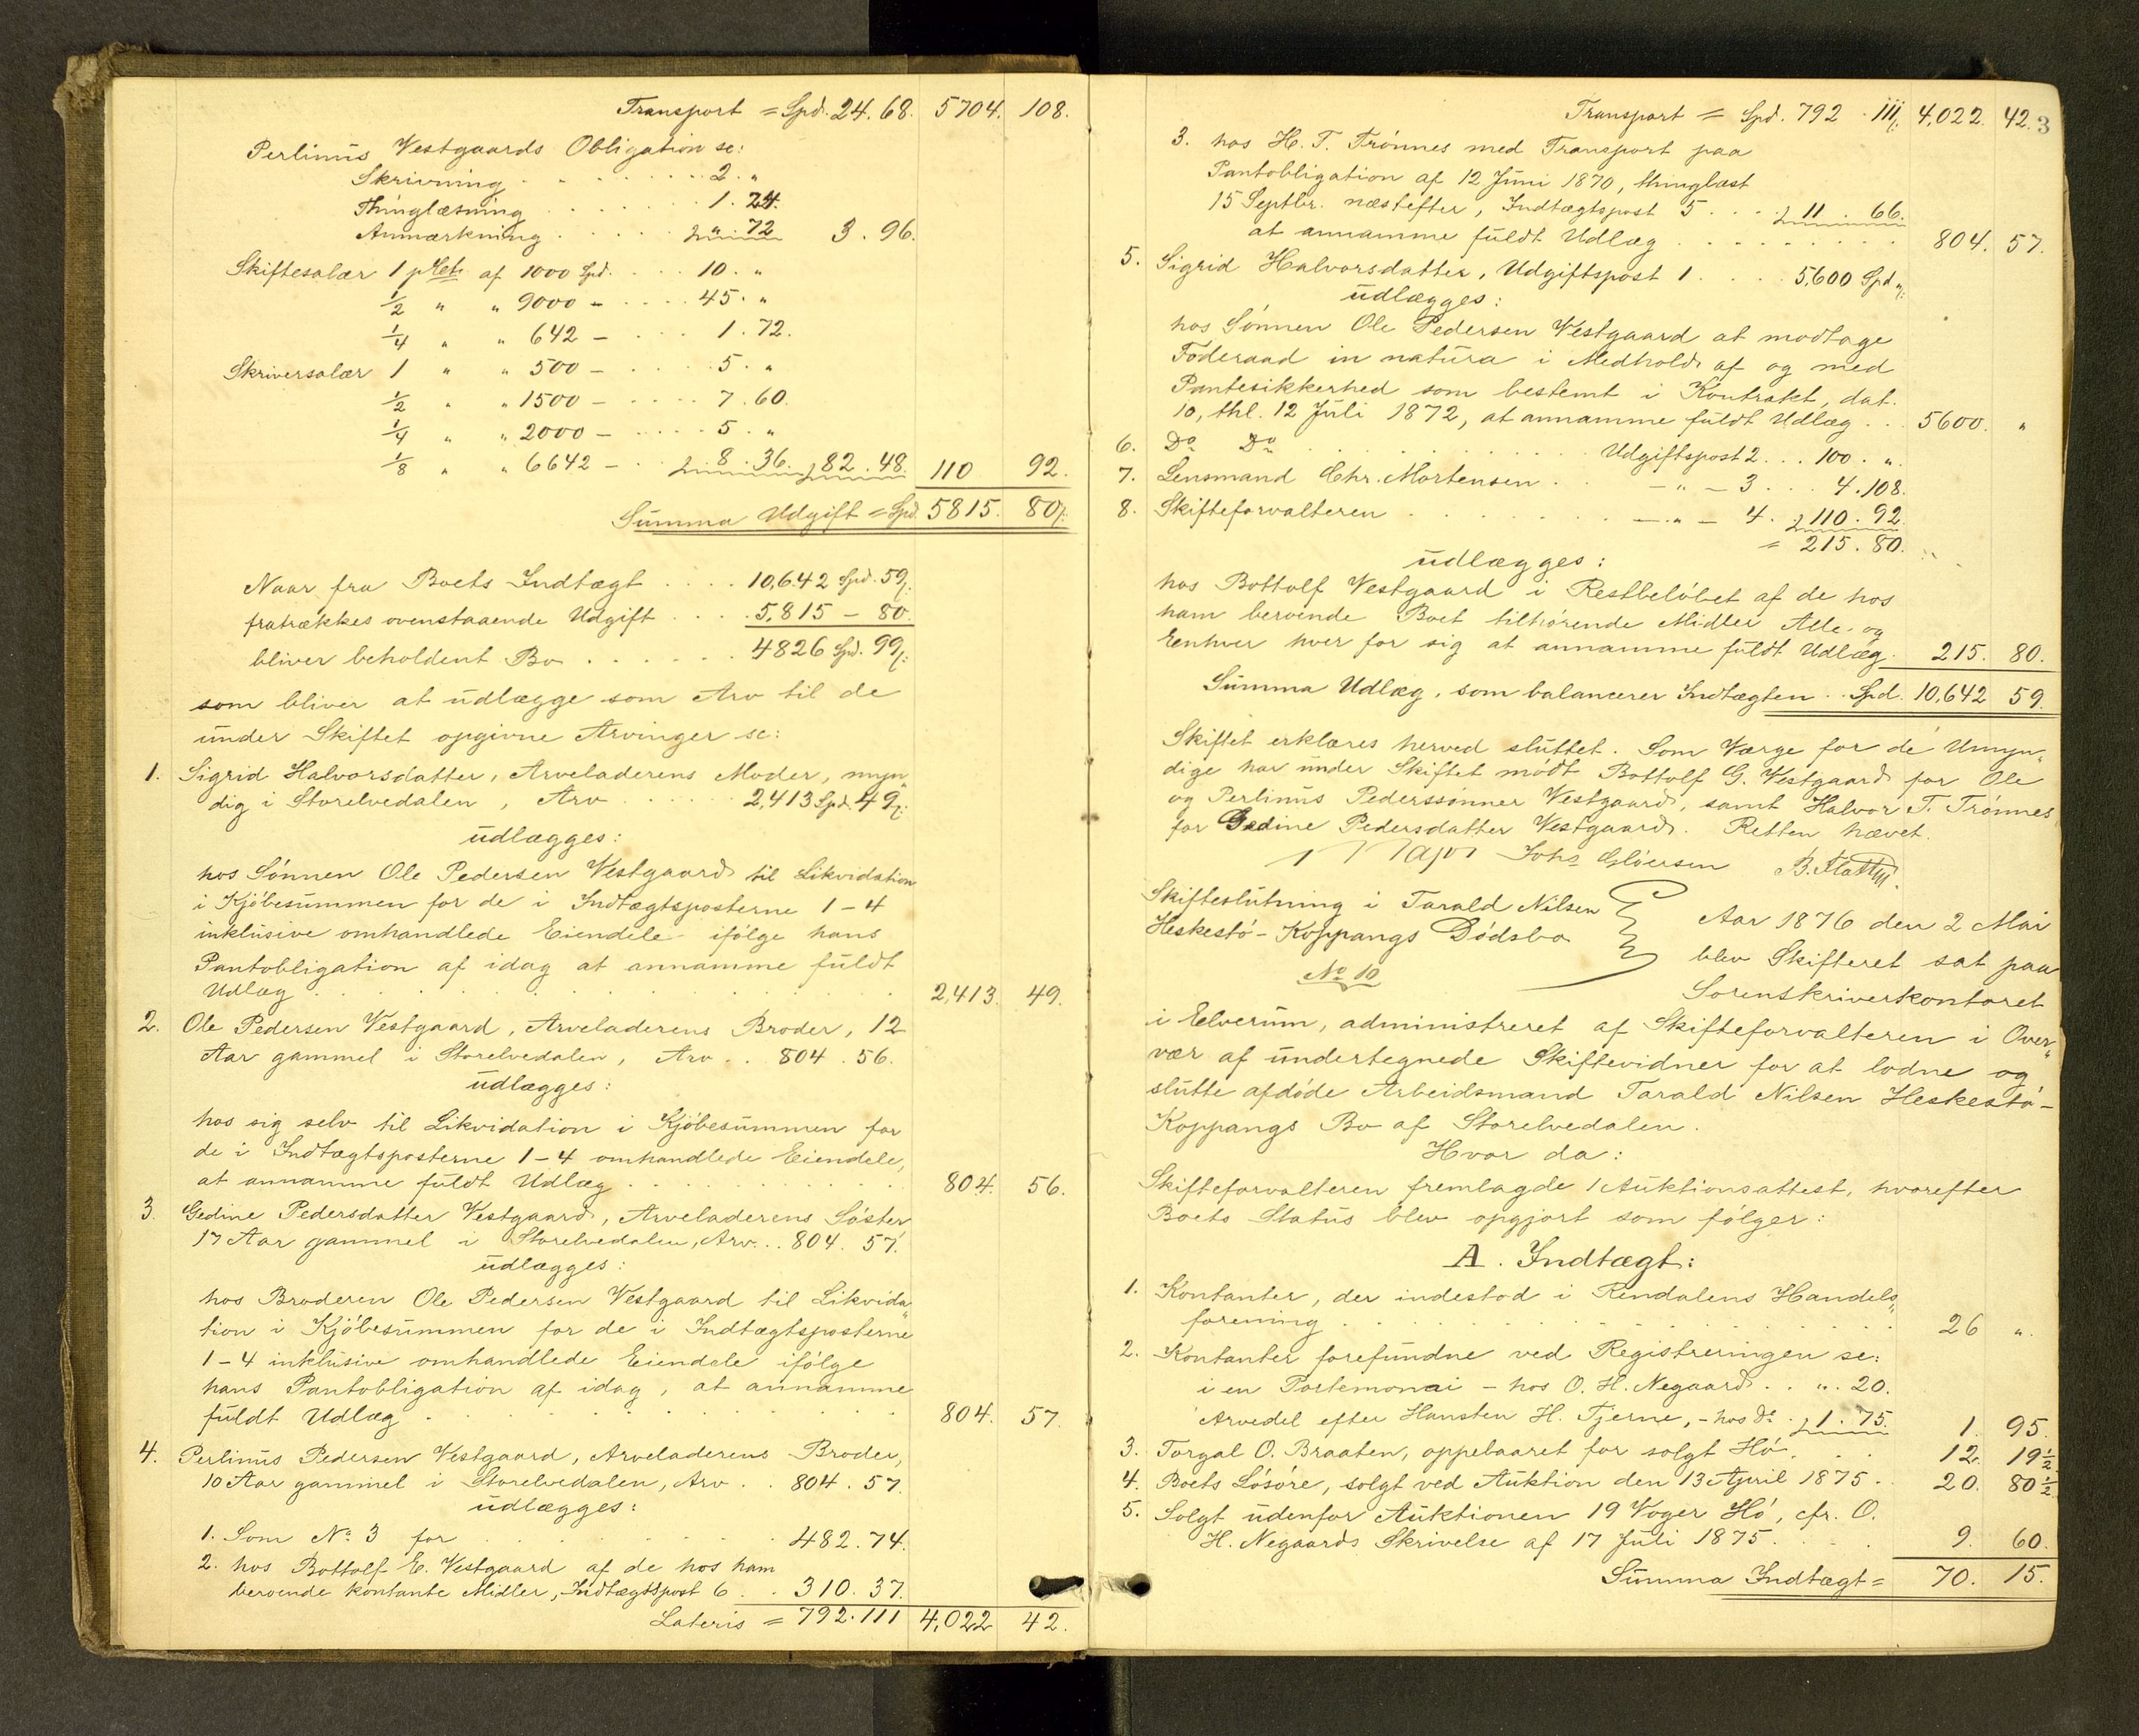 Transport = Spd. 24. 68. 5704. 108.
Perlinus Vestgaards Obligation se:
Skrivning . . . . . . . . 2. "
Thinglæsning . . . . . . . 1. 24.
Anmærkning . . . . . ". 72 3. 96.
Skiftesalær 1 pCt. af 1000 Spd. . . . . 10. "
½ " " 9000 - . . . . . 45. "
¼ " " 642 - . . . 1. 72.
Skriversalær 1 " " 500 - . . . . . 5. "
½ " " 1500 - . . . . 7. 60.
¼ " " 2000 - . . . . . 5. "
⅛ " " 6642 - . . 8. 36. 82. 48. 110 92.
Summa Udgift = Spd. 5815. 80/:
Naar fra Boets Indtægt . . . . 10,642 Spd. 59/:
fratrækkes ovenstaaende Udgift . . . . 5,815 - 80.
bliver beholdent Bo . . . . . . 4826 Spd. 99/:
som bliver at udlægge som Arv til de
under Skiftet opgivne Arvinger se:
1. Sigrid Halvorsdatter, Arveladerens Moder, myn„
dig i Storelvedalen, Arv . . . . . 2,413 Spd. 49/:
udlægges:
hos Sønnen Ole Pedersen Vestgaard til Likvidation
i Kjøbesummen for de i Indtægtsposterne 1-4
inklusive omhandlede Eiendele ifølge hans
Pantobligation af idag at annamme fuldt
Udlæg . . . . . . . . . . 2,413. 49.
2. Ole Pedersen Vestgaard, Arveladerens Broder, 12
Aar gammel i Storelvedalen, Arv . . 804. 56.
udlægges:
hos sig selv til Likvidation i Kjøbesummen for
de i Indtægtsposterne 1-4 omhandlede Eiendele,
at annamme fuldt Udlæg . . . . . . . . . 804. 56.
3. Gedine Pedersdatter Vestgaard, Arveladerens Søster
17 Aar gammel i Storelvedalen, Arv. . . 804. 57.
udlægges:
hos Broderen Ole Pedersen Vestgaard til Likvida„
tion i Kjøbesummen for de i Indtægtsposterne
1-4 inklusive omhandlede Eiendele ifølge
hans Pantobligation af idag, at annamme
fuldt Udlæg . . . . . . . . . 804. 57.
4. Perlinus Pedersen Vestgaard, Arveladerens Broder,
10 Aar gammel i Storelvedalen, Arv . . 804. 57.
udlægges:
1. Som No 3 for . . . . . . 482. 74.
2. hos Bottolf E. Vestgaard af de hos ham
beroende kontante Midler, Indtægtspost 6 . . 310. 37.
Lateris = 792. 111 4,022 42.
Transport = Spd. 792. 111/: 4,022. 42. 3
3. hos H. T. Trønnes med Transport paa
Pantobligation af 12 Juni 1870, thinglæst
15 Septbr. næstefter, Indtægtspost 5 . . . 11. 66.
at annamme fuldt Udlæg . . . . . . . . . 804. 57.
5. Sigrid Halvorsdatter, Udgiftspost 1 . . . . 5,600 Spd "/:
udlægges:
hos Sønnen Ole Pedersen Vestgaard at modtage
Føderaad in natura i Medhold af og med
Pantesikkerhed som bestemt i Kontrakt, dat.
10, thl. 12 Juli 1872, at annamme fuldt Udlæg . . . 5600. "
6. Do Do . . . . . . . . Udgiftspost 2 . . . 100. ".
7. Lensmand Chr. Mortensen . . - " - 3 . . . 4. 108.
8. Skifteforvalteren . . . . . . . - " - 4. 110. 92.
= 215. 80.
udlægges:
hos Bottolf Vestgaard i Restbeløbet af de hos
ham beroende Boet tilhørende Midler Alle og
Eenhver hver for sig at annamme fuldt Udlæg. 215. 80.
Summa Udlæg, som balancerer Indtægten . . Spd. 10,642 59.
Skiftet erklæres herved sluttet. Som Værge for de Umyn„
dige har under Skiftet mødt Bottolf G. Vestgaard for Ole
og Perlinus Pederssønner Vestgaard, samt Halvor T. Trønnes
for Gedine Pedersdatter Vestgaard. Retten hævet.
Johs Gløersen
Skifteslutning i Tarald Nilsen
Heskestø-Koppangs Dødsbo
No 10
Aar 1876 den 2 Mai
blev Skifteret sat paa
Sorenskriverkontoret
i Elverum, administreret af Skifteforvalteren i Over„
vær af undertegnede Skiftevidner for at lodne og
slutte afdøde Arbeidsmand Tarald Nilsen Heskestø-
Koppangs Bo af Storelvedalen.
Hvor da:
Skifteforvalteren fremlagde 1 Auktionsattest, hvorefter
Boets Status blev opgjort som følger:
A. Indtægt:
1. Kontanter, der indestod i Rendalens Handels„
forening . . . . . . . . . . . 26 ".
2. Kontanter forefundne ved Registreringen se:
i en Portemonai - hos O. H. Negaard . . ". 20.
Arvedel efter Hansten H. Tjerne, - hos do . 1. 75. 1. 95.
3. Torgal O. Braaten, oppebaaret for solgt Hø . . . 12. 19½
4. Boets Løsøre, solgt ved Auktion den 13 April 1875 . 20. 80½
5. Solgt udenfor Auktionen 19 Voger Hø, cfr. O.
H. Negaards Skrivelse af 17 Juli 1875 . . . . 9. 60.
Summa Indtægt = 70. 15.